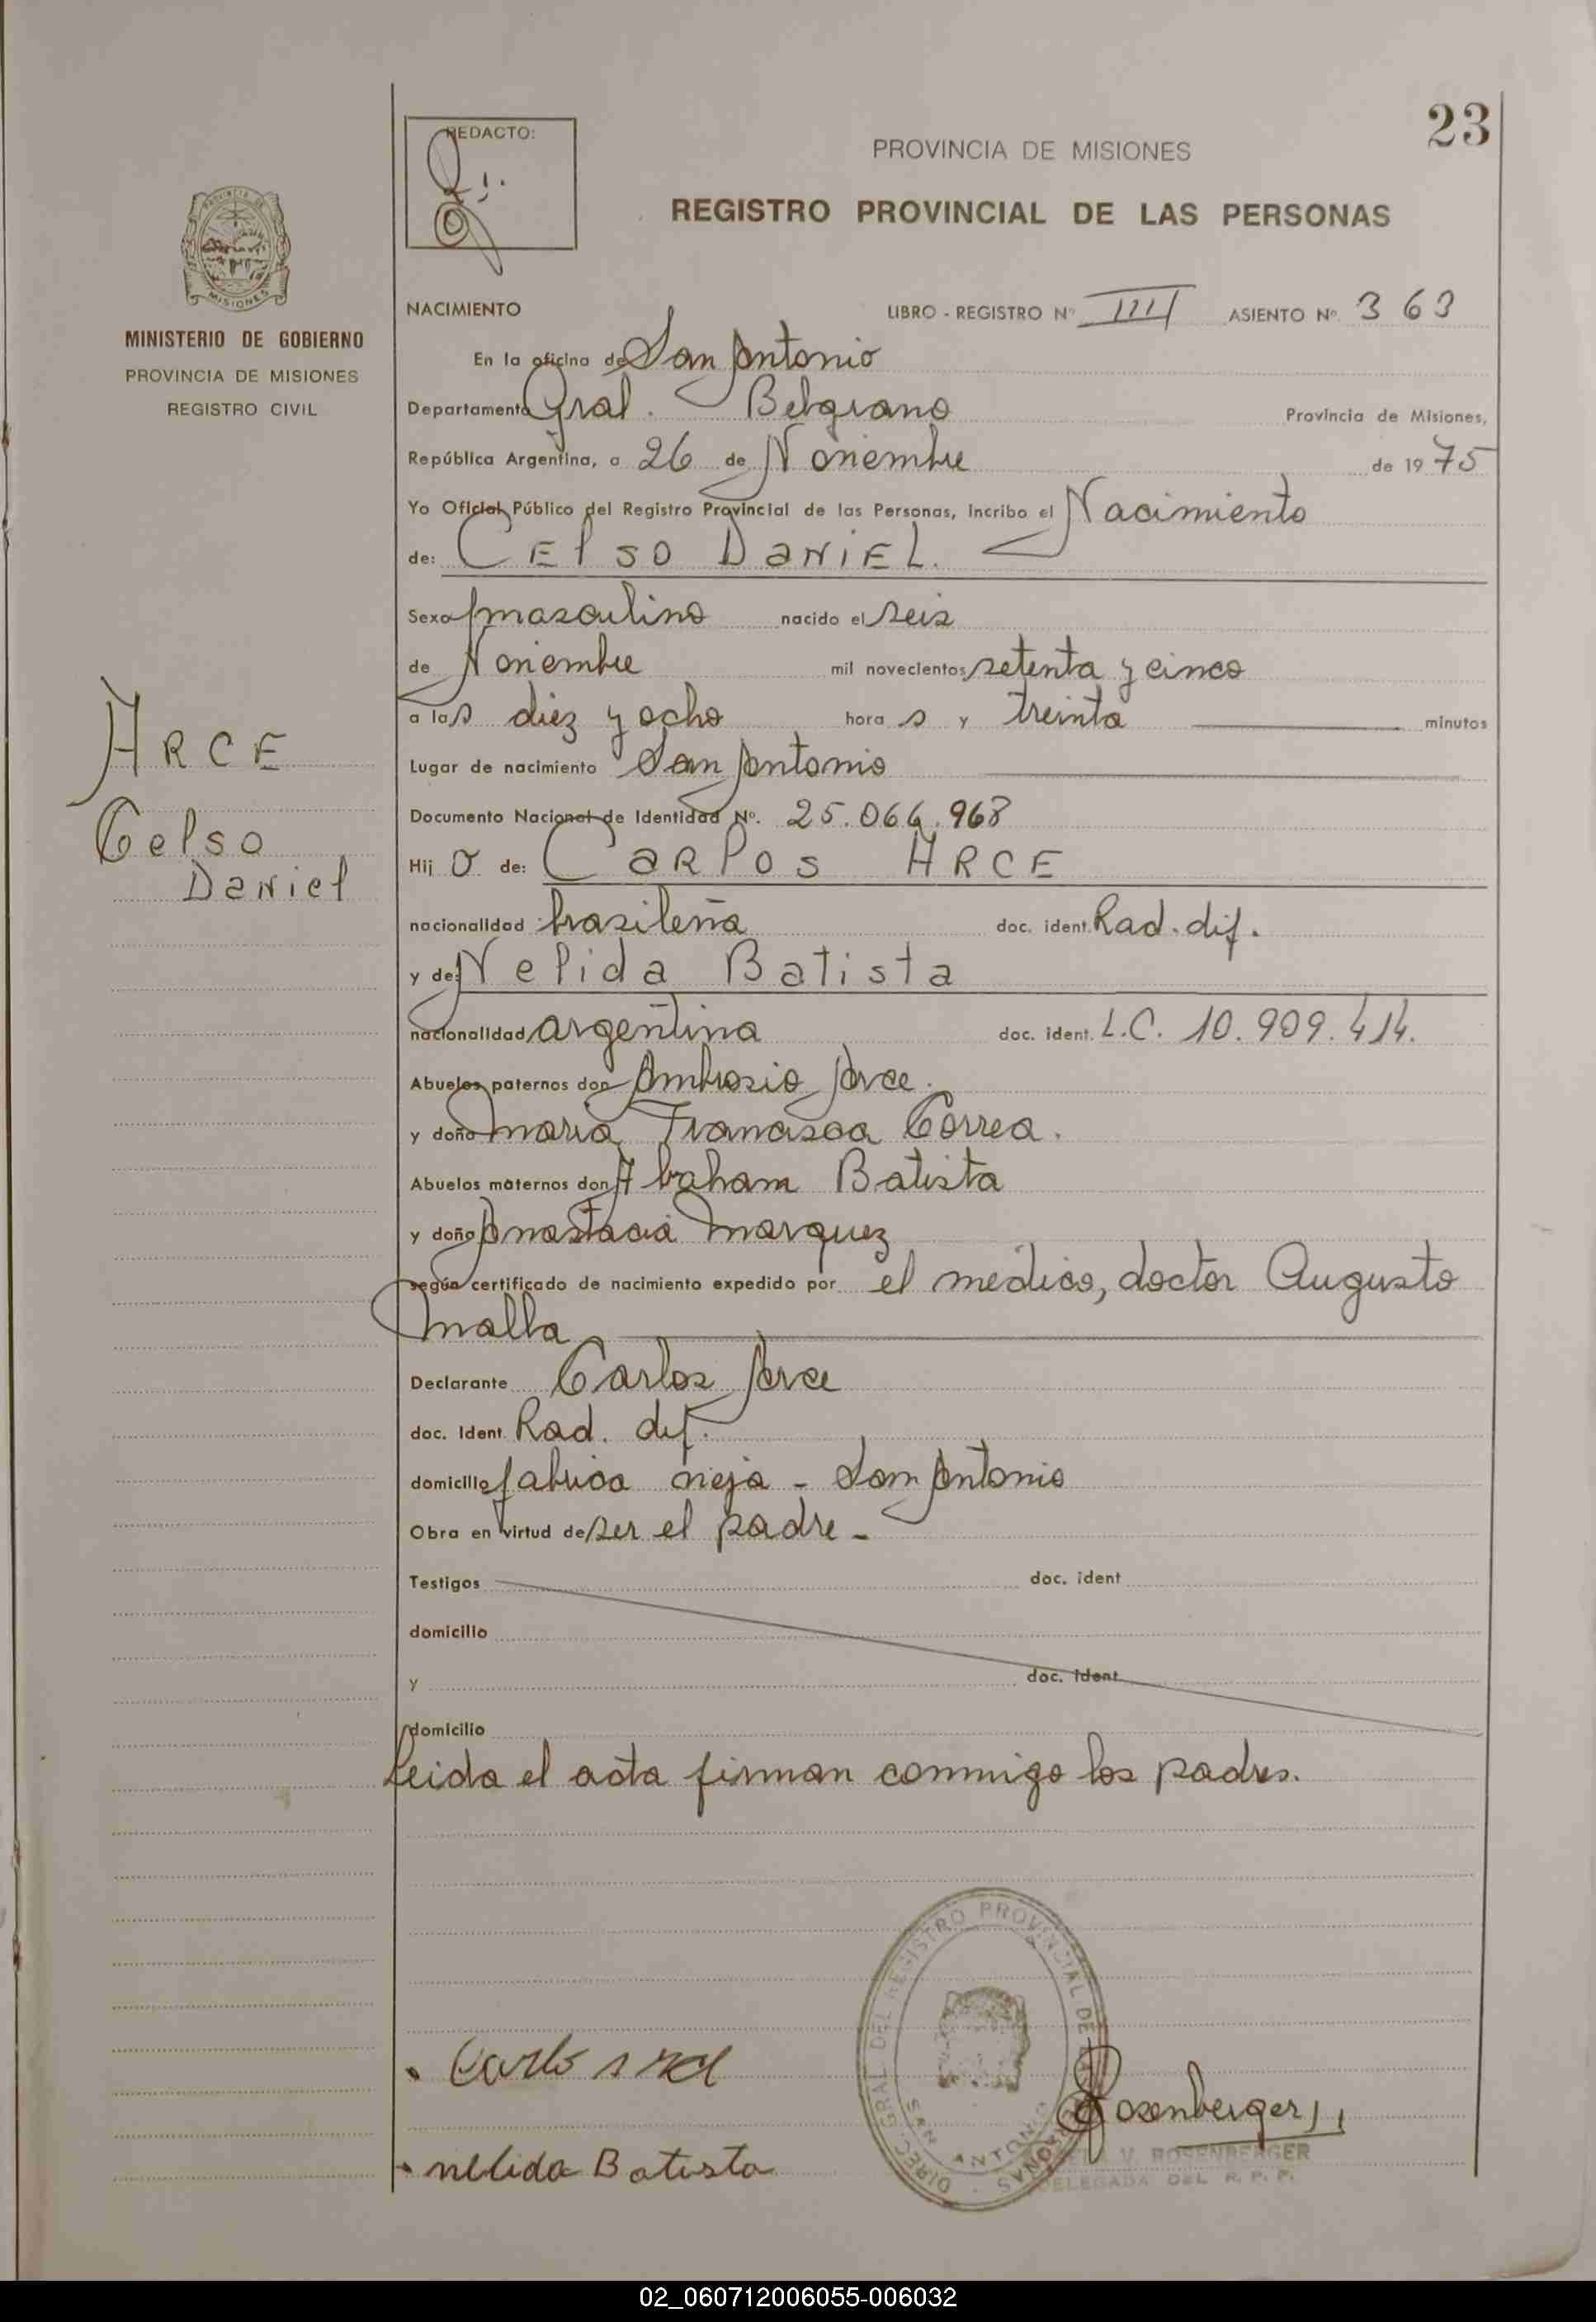 23
REDACTO:
PROVINCIA DE MISIONES
REGISTRO PROVINCIAL DE LAS PERSONAS
MISIONES
MINISTERIO DE GOBIERNO
PROVINCIA DE MISIONES
REGISTRO CIVIL
ARCE
Celso
Daniel
NACIMIENTO LIBRO - REGISTRO Nº III ASIENTO Nº 363
En la oficina de San Antonio
Departamento Gral. Belgrano Provincia de Misiones,
República Argentina, a 26 de Noviembre de 1975
Yo Oficial Público del Registro Provincial de las Personas, incribo el Nacimiento
de: CELSO DANIEL.
Sexo masculino nacido el seis
de Noviembre mil novecientos setenta y cinco
a las diez y ocho horas y treinta minutos
Lugar de nacimiento San Antonio
Documento Nacional de Identidad Nº. 25.064.968
Hijo de: CARLOS ARCE
nacionalidad brasileña doc. ident. Rad. dif.
y de: Nelida Batista
nacionalidad argentina doc. ident. L.C. 10.909.414.
Abuelos paternos don Ambrosio Arce.
y doña Maria Francisca Correa.
Abuelos maternos don Abraham Batista
y doña Anastacia Marquez
según certificado de nacimiento expedido por el médico, doctor Augusto
Malla
Declarante Carlos Arce
doc. ident. Rad. dif.
domicilio fabrica vieja - San Antonio
Obra en virtud de ser el padre -
Testigos doc. ident
domicilio
y doc. ident
domicilio
Leida el acta firman conmigo los padres.
DIREC. GRAL. DEL REGISTRO PROVINCIAL DE LAS PERSONAS
SAN ANTONIO
Carlos Arce
Rosenberger
nelida Batista
V. ROSENBERGER
DELEGADA DEL R. P. P.
02_060712006055-006032